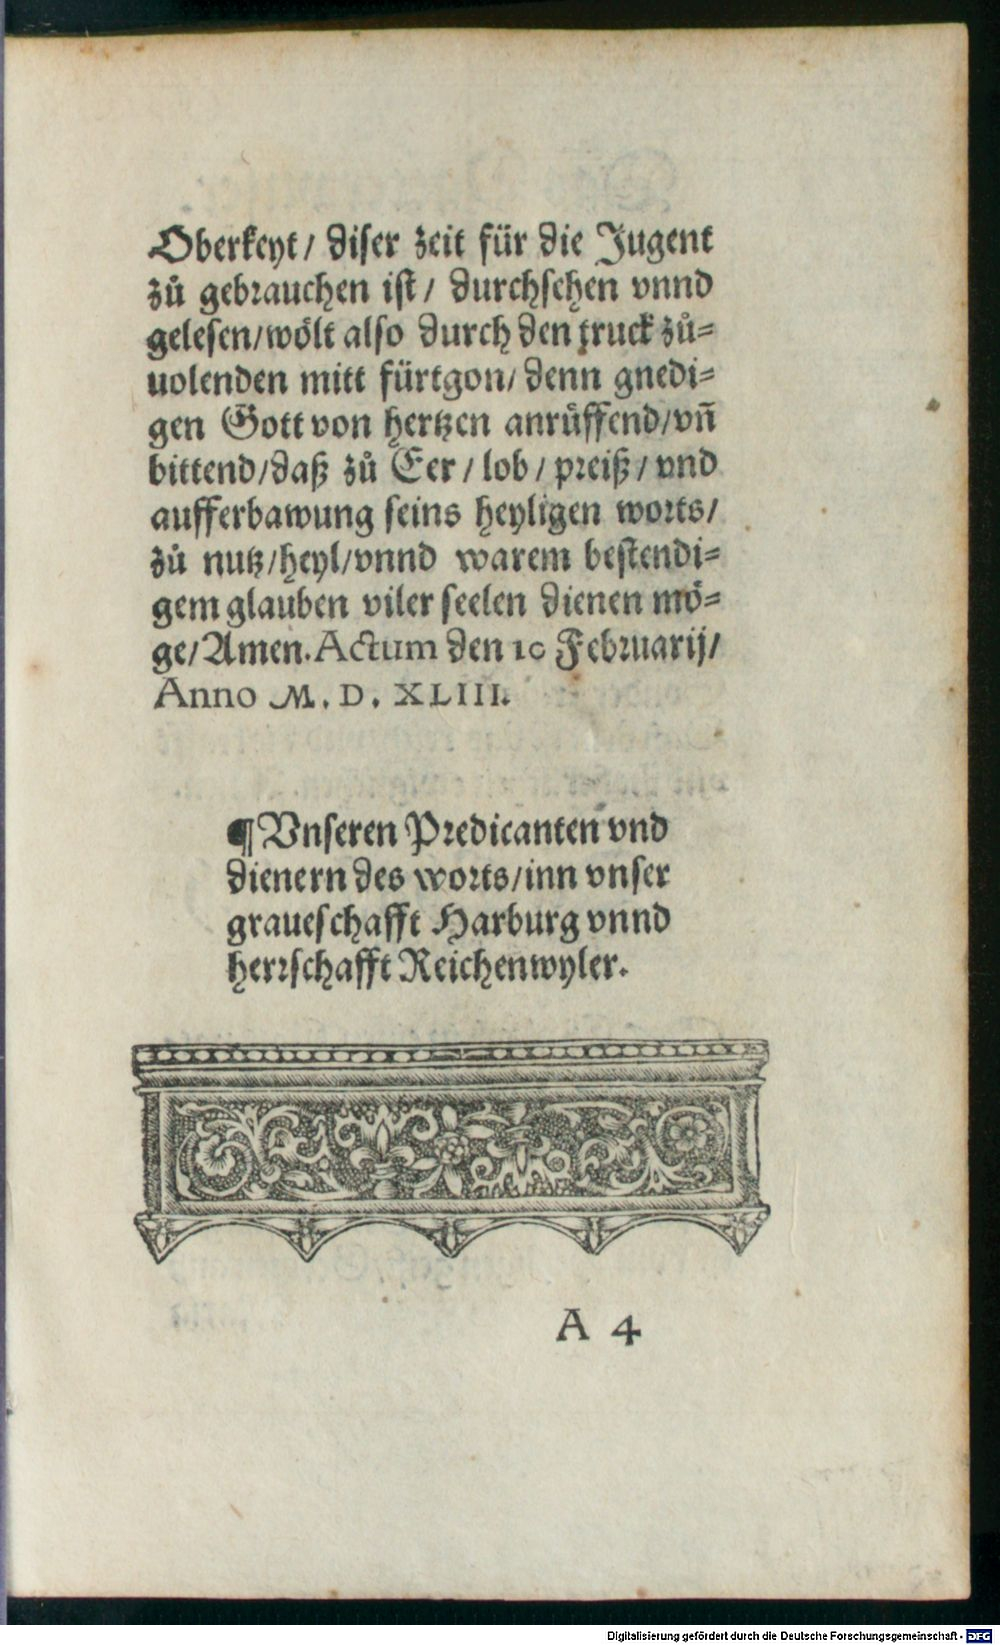 Oberkeyt/ diser zeit für die Jugent
zů gebrauchen ist/ durchsehen vnnd
gelesen/wölt also durch den truck zů=
uolenden mitt fürtgon/ denn gnedi=
gen Gott von hertzen anrüffend/vn̄
bittend/daß zů Eer/ lob/ preiß/ vnd
aufferbawung seins heyligen worts/
zů nutz/heyl/vnnd warem bestendi=
gem glauben viler seelen dienen mö=
ge/Amen. Actum den 10 Februarij/
Anno M. D. XLIII.
¶ Vnseren Predicanten vnd
dienern des worts/inn vnser
graueschafft Harburg vnnd
herrschafft Reichenwyler.
A 4
Digitalisierung gefördert durch die Deutsche Forschungsgemeinschaft - DFG